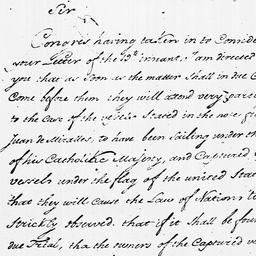 Sir
Congress having taken in to Consider
your Letter of the 19th instant. I am directed
you that as soon as the matter shall in due C
Come before them they will attend very parti
to the Case of the vessels Stated in the note
Juan de Miralles, to have been Sailing under th
of his Catholick Majesty, and Captured
vessels under the flag of the united Stat
that they will cause the Law of Nations t
Strictly observed. that if it shall be foun
due Trial, tha the owners of the Captured ve